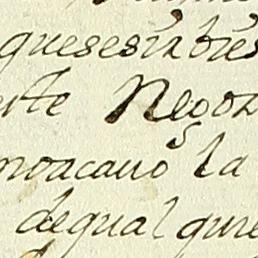 quesesirbies
rte Negoz
moacauo la
dequalqure